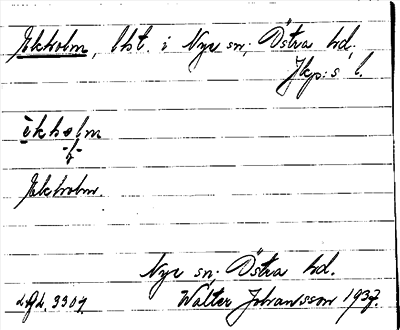 Ekholm, lht. i Nye sn, Östra hd,
Jkp:s l.
ekholm
-f-
Ekholm.
Nye sn, Östra hd.
Walter Johansson 1937.